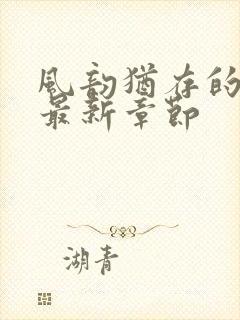 風韵猶存的
最新章節
湖青